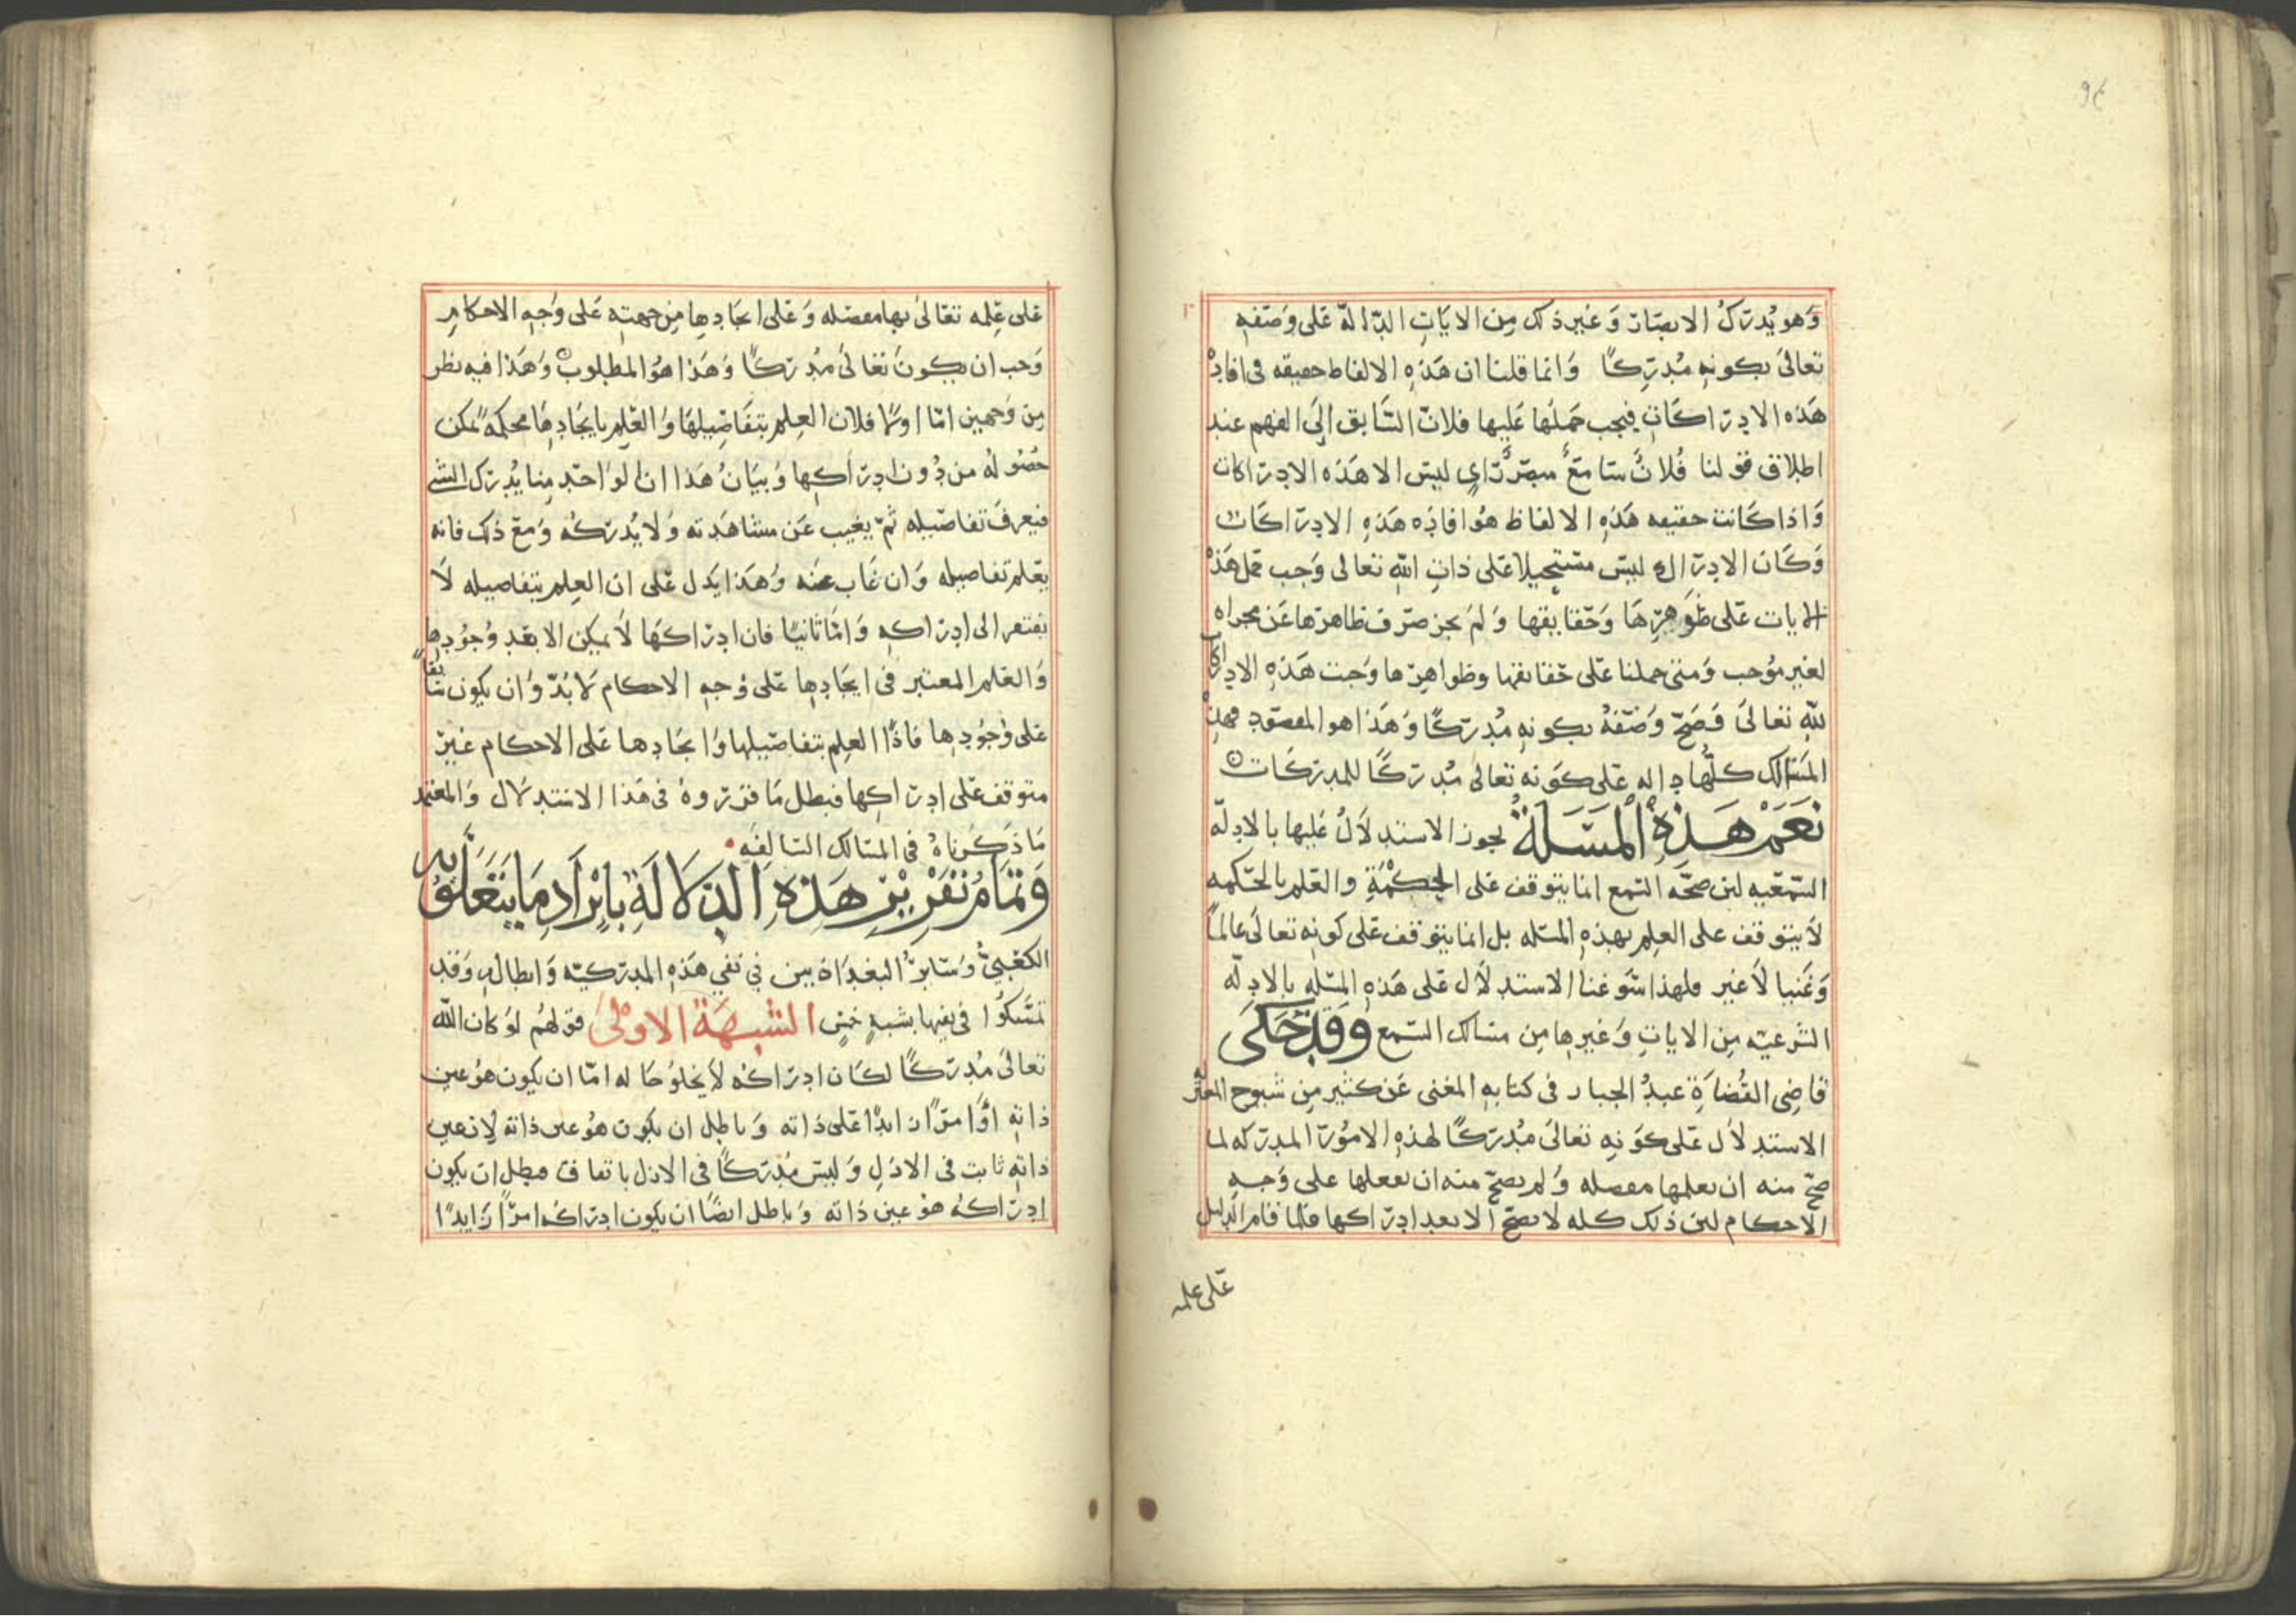 وَهو يُدركُ الابصَارَ وَغيرذلك مِن الايَاتِ الدّالّه عَلى وَصَفهِ
تعالىَ بكونهِ مُدرِكًا وَانما قلنا ان هَذهِ الالفاط حقيقه فى افادة
هَذه الادرَاكَاتِ فيجب حَملُها عَليها فلانّ السَّابق اِلَى الفهم عند
اطلاق قولنا فُلانٌ سَامعٌ مبصرٌ رَاىٍ ليسَ الا هَذه الادرَاكات
وَاذا كَانت حقيقه هَذهِ الالفاظ هُوَ افادَه هَذهِ الادرَاكَات
وَكَان الادرَاك ليسَ مستَحيلا عَلى ذاتِ اللّهِ تعالى وَجب حمل هَذه
الايات عَلى ظَوَاهِرِهَا وَحَقايقها وَلمَ يجز صَرف ظاهرهَا عَن مجراه
لغير مُوجب وَمتى حملنا عَلى حَقايقها وظواهِرها وَجبت هَذهِ الادراكات
للّه تعَالىَ فَصَحّ وَصَفهُ بكونهِ مُدركًا وَهَذا هو المقصَود فهذه
المسَالك كلُّها داله عَلى كوَنه تعالى مُدركًا للمدركَات
نَعَمْ هَذِهِ المَسَلَةُ يجوز الاستدلاَلُ عَليها بالادلّه
السّمعيه لين صحَّه السّمع انما يتوقف عَلى الحِكمَةِ والعَلم بالحَكمه
لاَيتوقف على العِلم بهذهِ المسَله بل انما يتوقف عَلى كونهِ تعالىَ عالمًا
وَغنيا لاَغير فلهذا سَوّغنا الاستدلاَل عَلى هَذهِ المسَله بالادلّه
الشرعيّه مِن الاياتِ وَغيرها مِن مسَالك السّمع وَقد حَكَى
قاضِى القُضَاةِ عبدُ الجبار فى كتابهِ المغنى عَن كثير مِن شيوح المعتزله
الاستدلاَل عَلى كوَنهِ تعالىَ مُدركًا لهذهِ الامُور المدركه لما
صَحّ منه ان يعلمها مفصله وَلم يصَحّ منه ان يفعلها على وَجهِ
الاحكام لين ذلك كله لا يصَحّ الا بعد ادرَاكها فلما قام الدليل
عَلى علمه
عَلى عِلمه تعَالىَ بها مفصَله وَعَلى ايجَادِها مِن جهتِه عَلى وَجهِ الاحكامِ
وَجب ان يكونَ تعَالىَ مُدركًا وَهَذا هُوَ المطلوب وَهَذا فيه نظر
مِن وَجهين امّا اولاً فلان العِلم بتفَاصِيلهَا وَالعَلم بايجَادِهَا محكمهً يمكن
حُصُولهُ من دُون ادرَاكِها وَبيَانُ هَذا ان الوَاحدِ مِنا يُدرَك الشى
فيعرفَ تفاصَيله ثمّ يغيب عَن مشاهَدته وَلا يُدركُه وَمع ذلك فانه
يعَلم تفاصيله وَان غَاب عنه وَهَذا يَدل عَلى ان العِلم بتفاصيله لاَ
يفتقر الى ادرَاكهِ وَامّا ثانيًا فان ادرَاكهَا لاَ يمكِن الا بعَد وُجُودِها
وَالعَلم المعتبر فى ايجَادِها عَلى وَجهِ الاحكام لاَ بُدّ وَان يكون سَابقًا
عَلى وُجُودِها فاذًا العِلم بتفاصَيلها وَايجَادِها عَلى الاحكام غيرَ
متوقف عَلى ادرَاكِها فبطل مَا قرّروهُ فى هَذا الاستدلال وَالمعتمد
مَا ذَكَرناهُ فى المسَالك السّالِفَه
وَتمَامُ تقَرِيرِ هَذِهِ الدّلالَةِ بايْرَادِ مَا يتَعَلقُ بهِ
الكعَبىُّ وَسَايرُ البغدَاذيين فى نفي هَذهِ المدركيّه وَابطالهِ وَقد
تمَسّكوُا فى نفيها بشبهٍ خمسٍ الشبهَةُ الاوْلىَ قوَلهُم لوَ كان اللّه
تعالىَ مُدركًا لكَان ادرَاكُه لاَيخلوُ حَاله امّا ان يكون هوُعين
ذاتهِ اوَ امرًا زايدًا عَلى ذاته وَباطل ان يكون هوُعين ذاته لان عين
ذاتهِ ثابت فى الازلِ وَليسَ مُدركًا فى الازل باتفاق فبطل ان يكون
ادرَاكهُ هوُ عين ذاته وَباطل ايضًا ان يكون ادرَاكهُ امرًا زايدًا